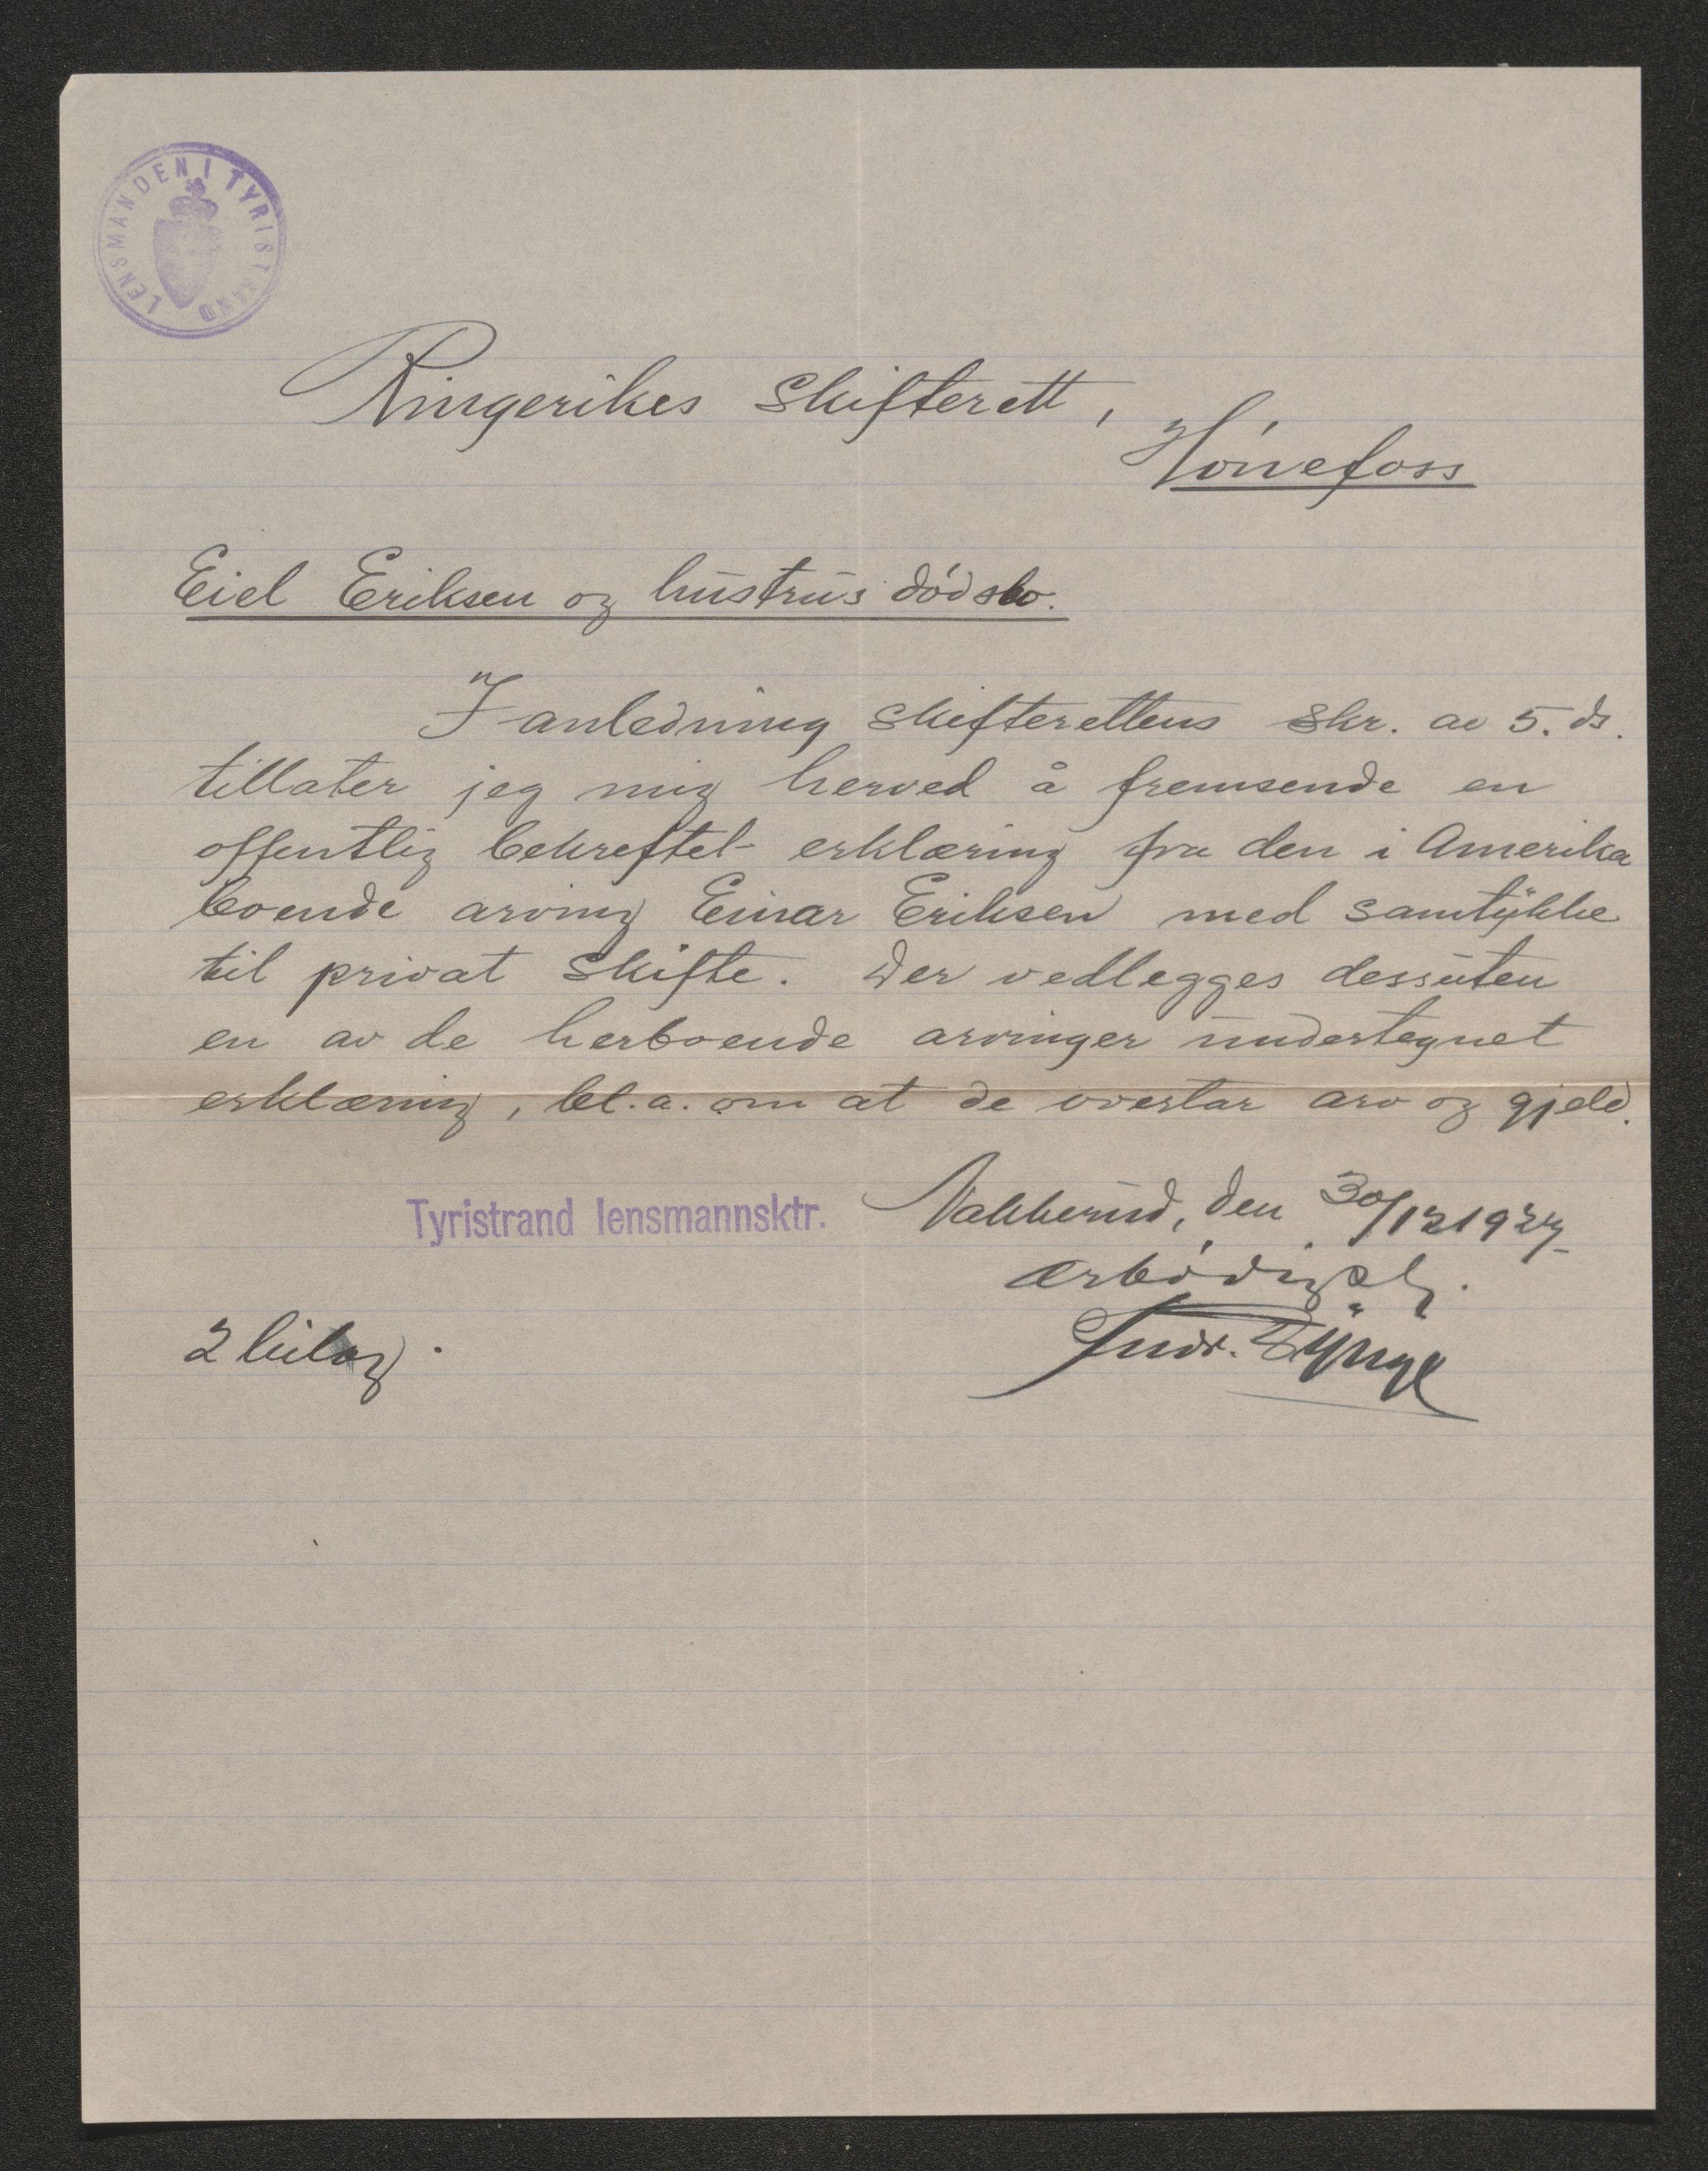 LENSMANDEN I TYRISTRAND
Ringerikes skifterett,
Hønefoss
Eiel Eriksen og hustrus dødsbo.
I anledning skifterettens skr. av 5. ds.
tillater jeg mig herved å fremsende en
offentlig bekreftet erklæring fra den i Amerika
boende arving Einar Eriksen med samtykke
til privat skifte. Der vedlegges dessuten
en av de herboende arvinger undertegnet
erklæring, bl.a. om at de overtar arv og gjeld.
Tyristrand lensmannsktr.
Nakkerud, den 30/12 1927
ærbødigst.
2 bilag.